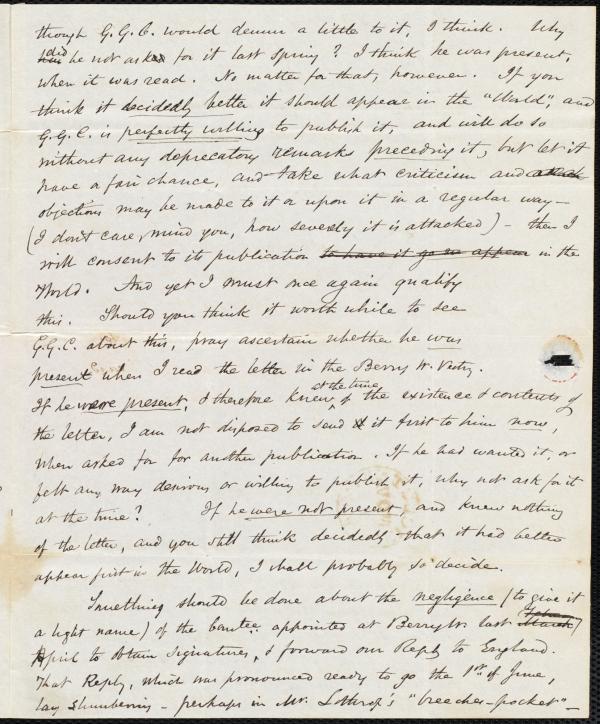 though G.G.C. would demur a little to it, I think. Why
did he not ask for it last Spring? I think he was present,
when it was read. No matter for that, however. If you
think it decidedly better it should appear in the "World", and
G.G.C. is perfectly willing to publish it, and will do so
without any deprecatory remarks preceding it, but let it
have a fair chance, and take what criticism and
objections may be made to it or upon it in a regular way –
(I don't care, mind you, how severely it is attacked) – then I
will consent to its publication to have it go in appear in the
World. And yet I must once again qualify
this. Should you think it worth while to see
G.G.C. about this, pray ascertain whether he was
present when I read the letter in the Berry St. Vestry.
If he were present, & therefore knew at the time of the existence & contents of
the letter, I am not disposed to send it first to him now,
when asked for for another publication. If he had wanted it, or
felt any way desirous or willing to publish it, why not ask for it
at the time? If he were not present, and knew nothing
of the letter, and you still think decidedly that it had better
appear first in the World, I shall probably so decide.
Something should be done about the negligence (to give it
a light name) of the Comtee. appointed at Berry St. last
April to obtain signatures, & forward our Reply to England.
That Reply, which was pronounced ready to go the 1st. of June,
lay slumbering – perhaps in Mr. Lothrop's "breeches-pocket" –